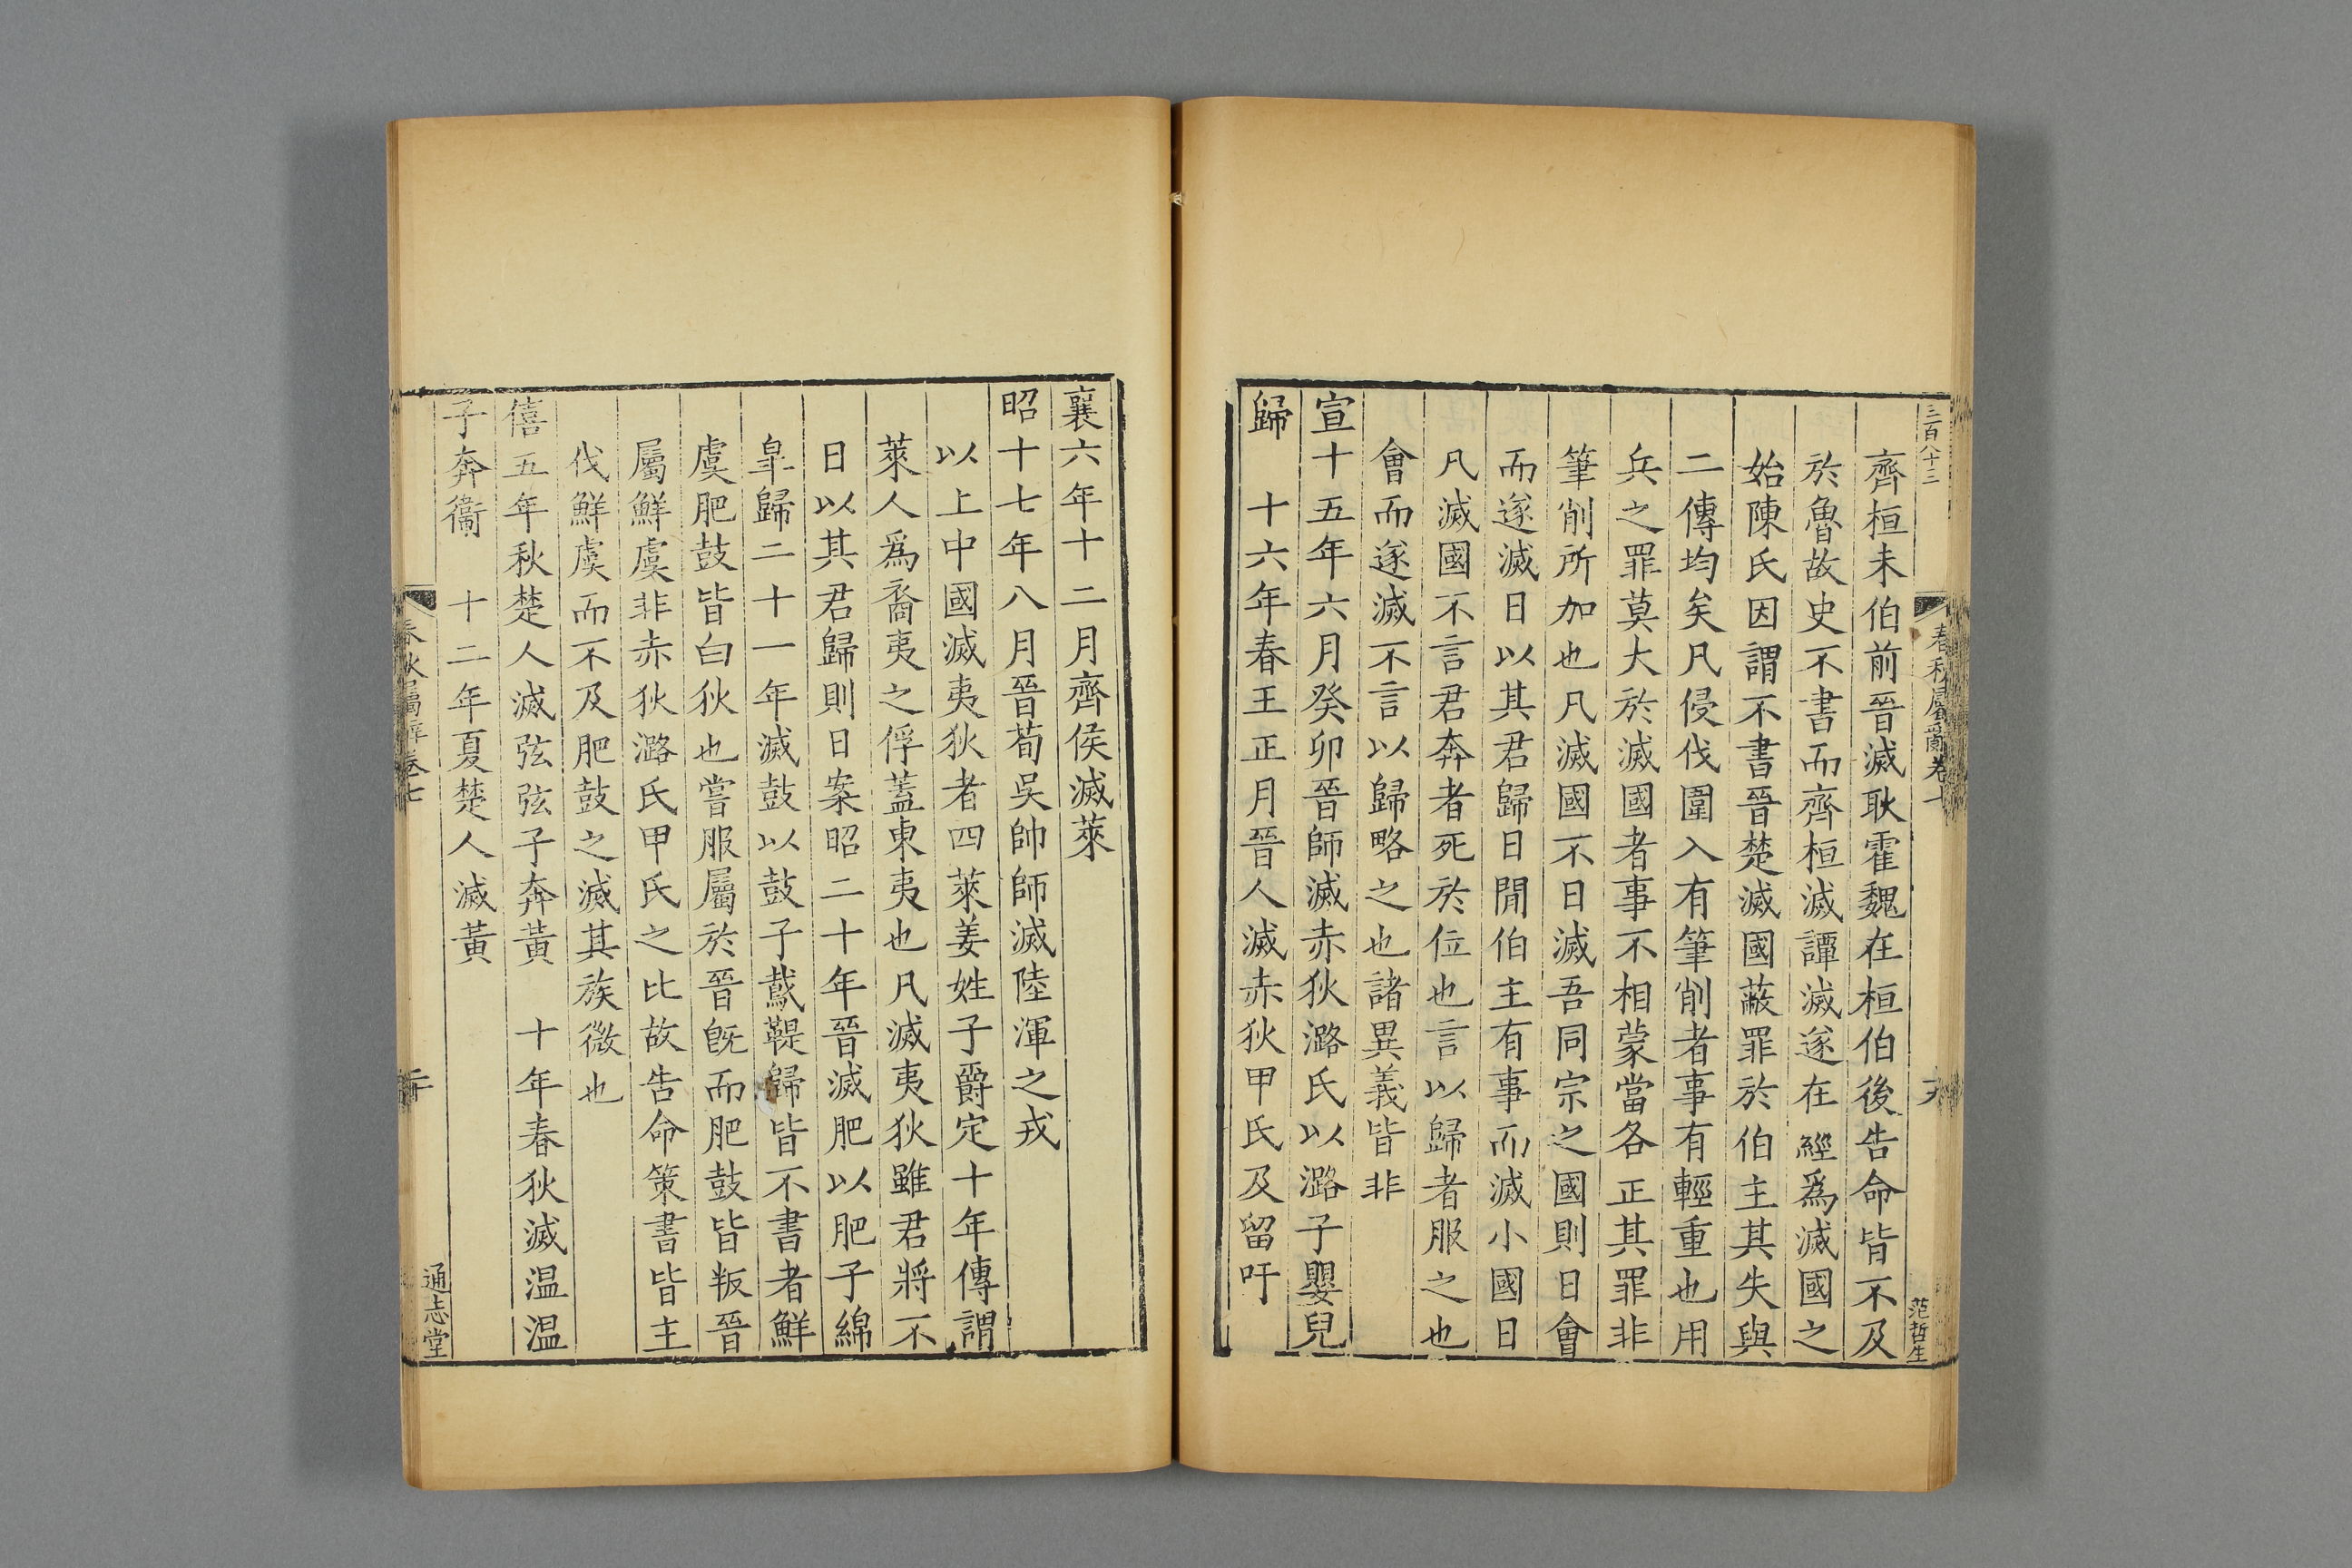 三百八十三
春秋屬辭卷七
范哲生
齊桓未伯前晉滅耿霍魏在桓伯後告命皆不及
於魯故史不書而齊桓滅譚滅遂在經爲滅國之
始陳氏因謂不書晉楚滅國蔽罪於伯主其失與
二傳均矣凡侵伐圍入有筆削者事有輕重也用
兵之罪莫大於滅國者事不相蒙當各正其罪非
筆削所加也凡滅國不日滅吾同宗之國則日會
而遂滅日以其君歸日閒伯主有事而滅小國日
凡滅國不言君奔者死於位也言以歸者服之也
會而遂滅不言以歸略之也諸異義皆非
宣十五年六月癸卯晉師滅赤狄潞氏以潞子嬰兒
歸　十六年春王正月晉人滅赤狄甲氏及留吁
襄六年十二月齊侯滅萊
昭十七年八月晉荀吳帥師滅陸渾之戎
以上中國滅夷狄者四萊姜姓子爵定十年傳謂
萊人爲裔夷之俘蓋東夷也凡滅夷狄雖君將不
日以其君歸則日案昭二十年晉滅肥以肥子綿
臯歸二十一年滅鼓以鼓子鳶鞮歸皆不書者鮮
虞肥鼓皆白狄也嘗服屬於晉旣而肥鼓皆叛晉
屬鮮虞非赤狄潞氏甲氏之比故告命策書皆主
伐鮮虞而不及肥鼓之滅其族微也
僖五年秋楚人滅弦弦子奔黃　十年春狄滅温温
子奔衞　十二年夏楚人滅黃
春秋屬辭卷七
二十
通志堂